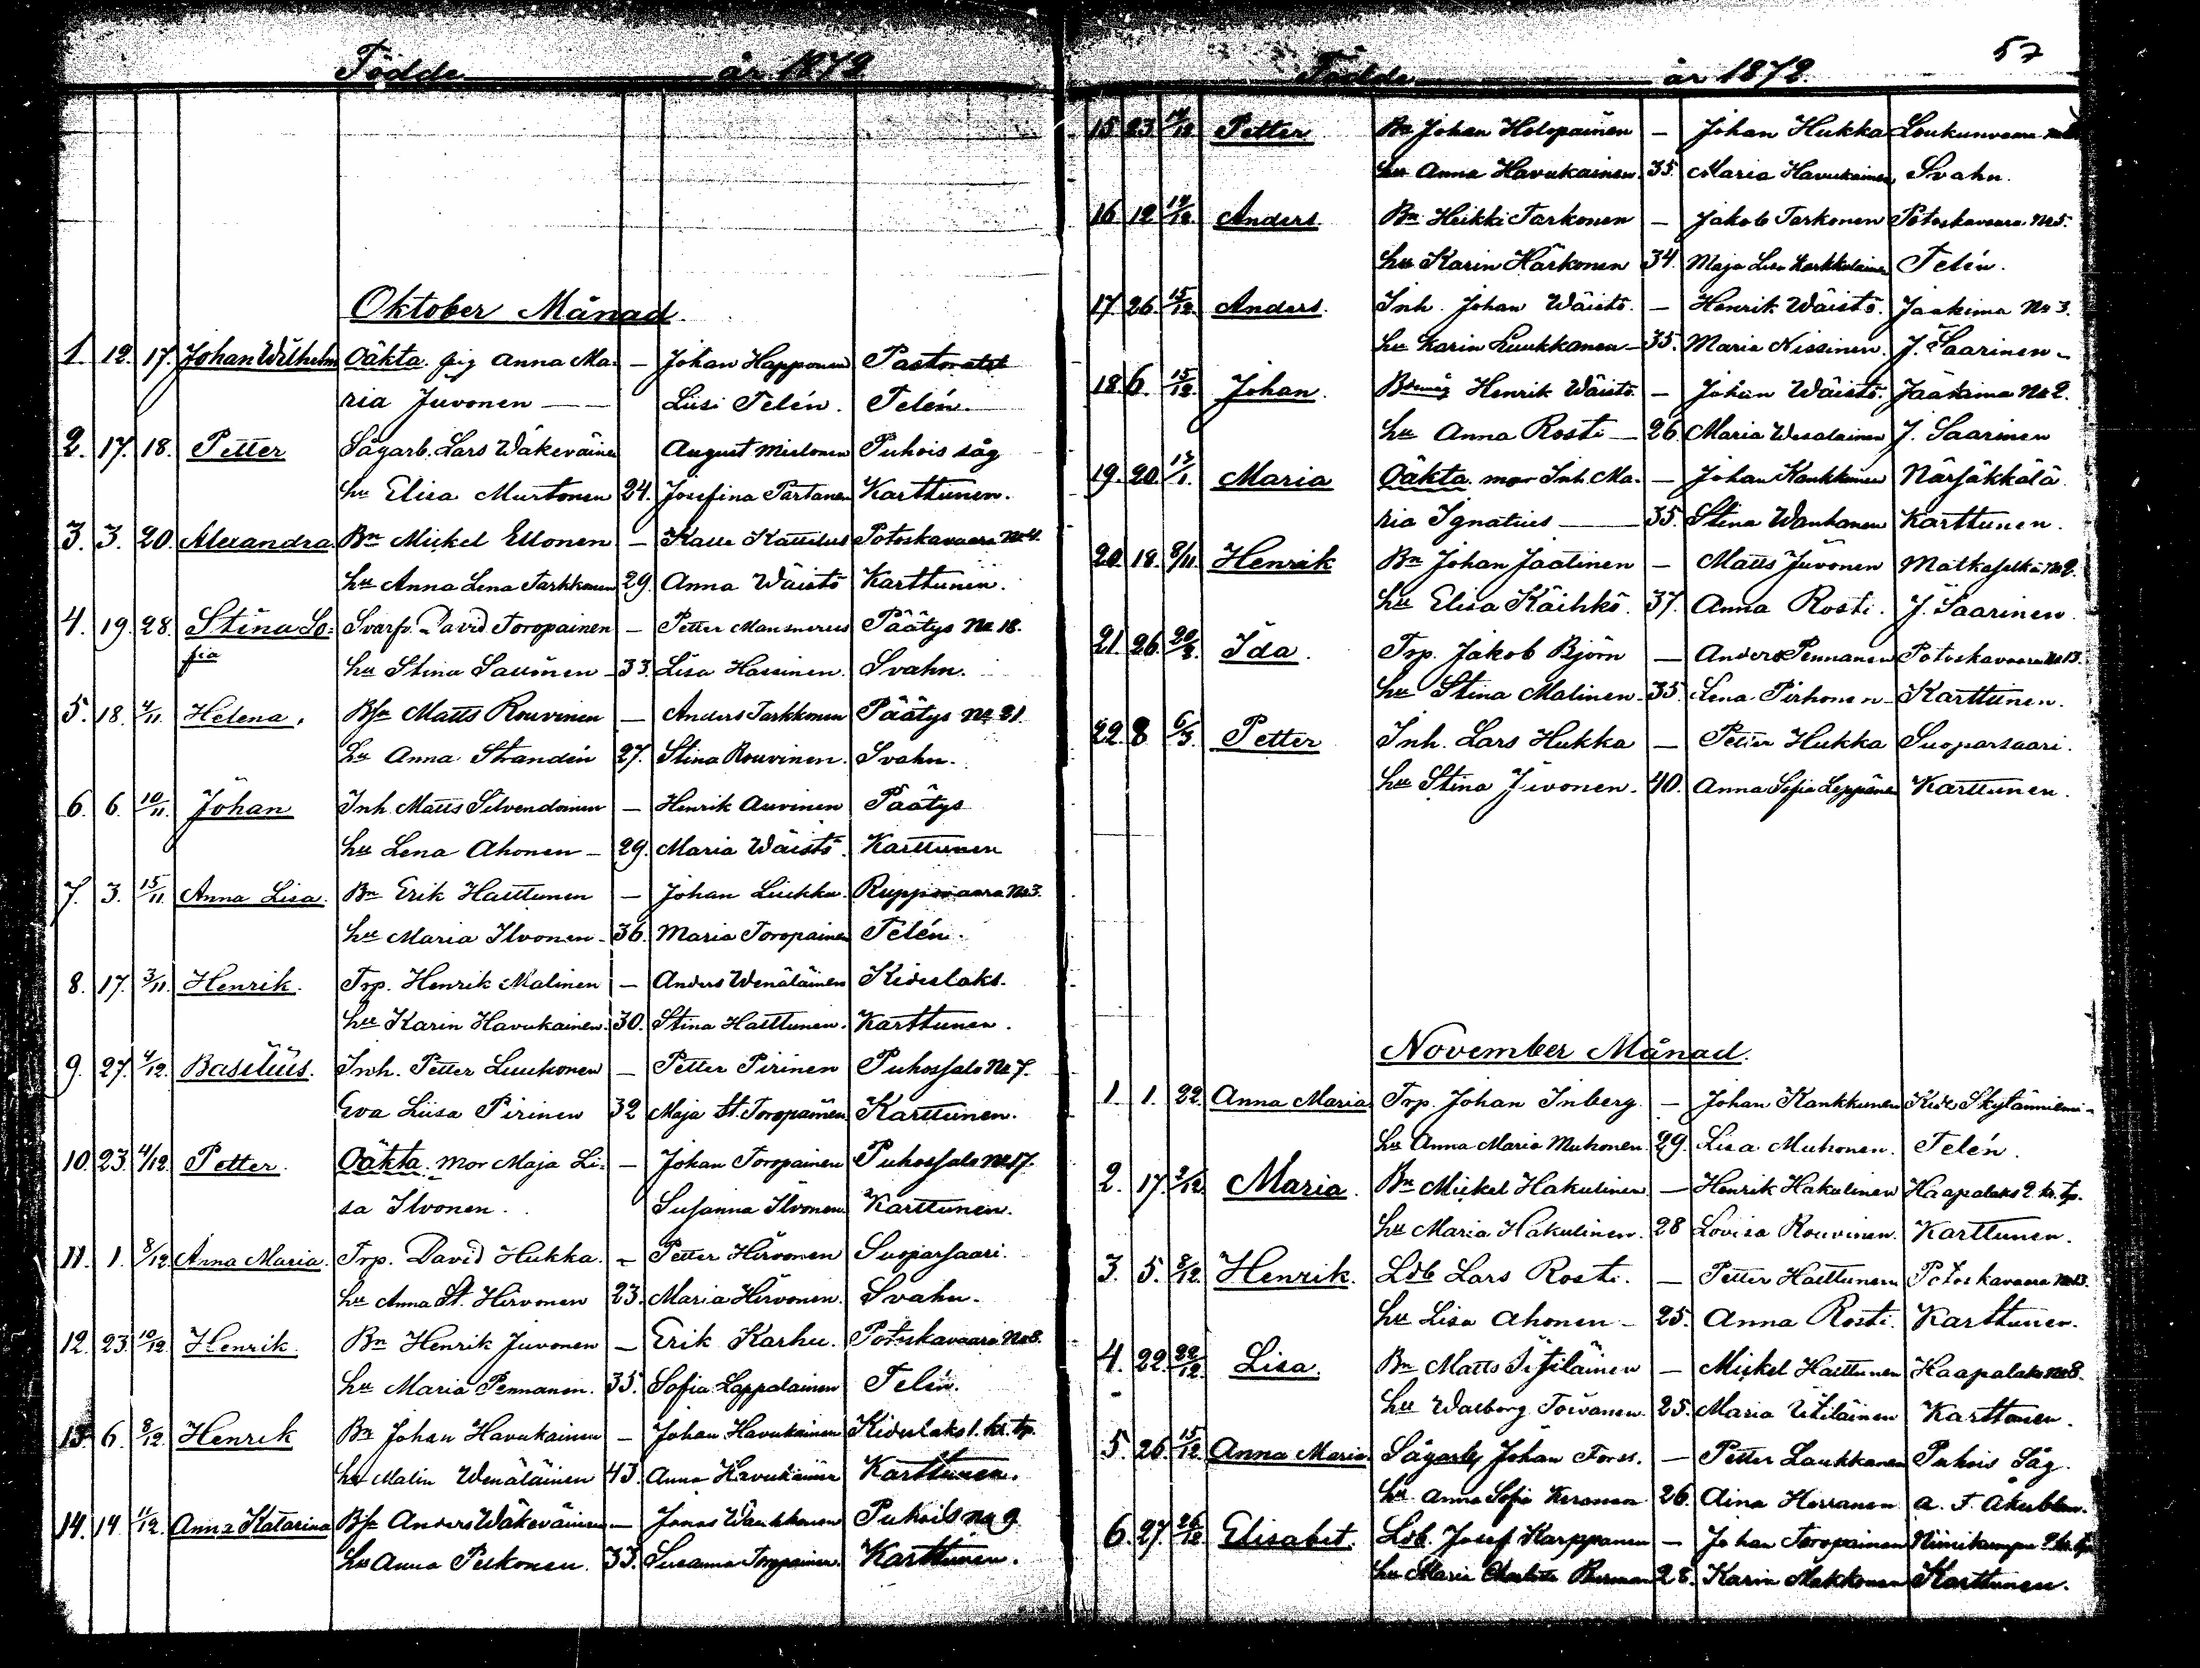 Födde år 1872
Oktober Månad.
1. 12. 17. Johan Wilhelm Oäkta. pig Anna Ma- — Johan Happonen Pastoratet
ria Juvonen — Liisi Telén. Telén.
2. 17. 18. Petter Sågarb. Lars Wäkeväinen August Mielonen Puhois såg
hu Elisa Murtonen 24. Josefina Partanen Karttunen.
3. 3. 20. Alexandra Bn Mickel Ellonen — Kalle Kattilus Potoskavaara No 4.
hu Anna Lena Tarkkonen 29. Anna Wäistö Karttunen.
4. 19. 28. Stina So= Svarfv. David Toropainen — Petter Mansnerus Päätys No 18.
fia hu Stina Sallinen 33. Lisa Hassinen. Svahn.
5. 18. 4/11. Helena. Bsn Matts Rouvinen — Anders Tarkkonen Päätys No 21.
hu Anna Strandén 27. Stina Rouvinen. Svahn.
6. 6. 10/11. Johan Inh. Matts Silvendoinen — Henrik Auvinen Päätys
hu Lena Ahonen — 29. Maria Wäistö. Karttunen
7. 3. 15/11. Anna Lisa. Bn Erik Hattunen — Johan Liukku. Ruppovaara No 3.
hu Maria Ilvonen. 36. Maria Toropainen Telén.
8. 17. 3/11. Henrik. Trp. Henrik Malinen — Anders Wenäläinen Kideslaks.
hu Karin Havukainen. 30. Stina Hattunen. Karttunen.
9. 27. 4/12. Basilius. Inh. Petter Luukonen — Petter Pirinen Puhossalo No 7.
Eva Liisa Pirinen 32 Maja St. Toropainen Karttunen.
10. 23. 4/12. Petter. Oäkta. mor Maja Li- — Johan Toropainen Puhossalo No 17.
sa Ilvonen. Susanna Ilvonen Karttunen.
11. 1. 8/12. Anna Maria. Trp. David Hukka. — Petter Hirvonen Suoparsaari.
hu Anna St. Hirvonen 23. Maria Hirvonen. Svahn.
12. 23. 10/12. Henrik. Bn Henrik Juvonen — Erik Karhu. Potoskavaara No 8.
hu Maria Pennanen. 35. Sofia Lappalainen Telén.
13. 6. 8/12. Henrik Bn Johan Havukainen — Johan Havukainen Kideslaks 1. kr. tp.
hu Malin Wenäläinen 43. Anna Havukainen Karttunen.
14. 14. 11/12. Anna Katarina Bsn Anders Wäkeväinen — Jonas Wänkkonen Puhois No 9
hu Anna Pukonen. 33. Susanna Toropainen. Karttunen.
Födde år 1872. 57
15 23. 12. Petter Bn Johan Holopainen — Johan Hukka Loukunvaara
hu Anna Havukainen. 35. Maria Havukainen Svahn.
16. 12 14/12. Anders. Bn Heikki Tarkonen — Jakob Tarkonen Potoskavaara No 5.
hu Karin Härkönen 34. Maja Lisa Karkkulainen Telén.
17. 26. 15/12. Anders. Inh. Johan Wäistö. — Henrik Wäistö. Jaakima No 3.
hu Karin Luukkanen — 35. Maria Nissinen. J. Saarinen.
18 6. 15/12. Johan. Henrik Wäistö. — Johan Wäistö. Jaakima No 2.
hu Anna Rosti — 26 Maria Wesalainen J. Saarinen
19. 20. 13/1. Maria Oäkta mor Inh. Ma. — Johan Kankkunen Närsäkkälä
ria Ignatius — 35. Stina Wanhanen Karttunen.
20. 18. 8/11. Henrik Bn Johan Jaatinen — Matts Juvonen Matkaselkä No 2.
hu Elisa Käihkö. 37. Anna Rosti. J. Saarinen.
21. 26. 20/2. Ida. Trp. Jakob Björn — Anders Pennanen Potoskavaara No 13.
hu Stina Malinen. 35. Lena Pirhonen Karttunen.
22. 8 6/3. Petter Inh. Lars Hukka — Petter Hukka Suoparsaari.
hu Stina Juvonen. 40. Anna Sofia Leppänen Karttunen.
November Månad.
1. 1. 22. Anna Maria Trp. Johan Inberg. — Johan Kankkunen Kide Skytänniemi
hu Anna Maria Muhonen. 29. Lisa Muhonen. Telén.
2. 17. 2/12. Maria. Bn Mickel Hakulinen — Henrik Hakulinen Haapalaks 2. kr. tp.
hu Maria Hakulinen. 28 Lovisa Rouvinen. Karttunen.
3. 5. 8/12. Henrik. Lsb Lars Rosti. — Petter Hattunen Potoskavaara No 13.
hu Lisa Ahonen — 25. Anna Rosti. Karttunen.
4. 22. 22/12. Lisa. Bn Matts — Mickel Hattunen Haapalaks No 8.
hu Walborg Toivanen. 25. Maria Karttunen.
5. 26. 15/12. Anna Maria. Sågarb. Johan Forss. — Petter Laukkanen Puhois Såg.
hu Anna Sofia Keronen 26. Aina Herranen A. F. Åkerblom.
6. 27. 26/12 Elisabet. Lsb. Josef Karppanen — Johan Toropainen Niinikumpu 2. kr. tp.
hu Maria Charlotta Burman 28. Karin Makkonen Karttunen.